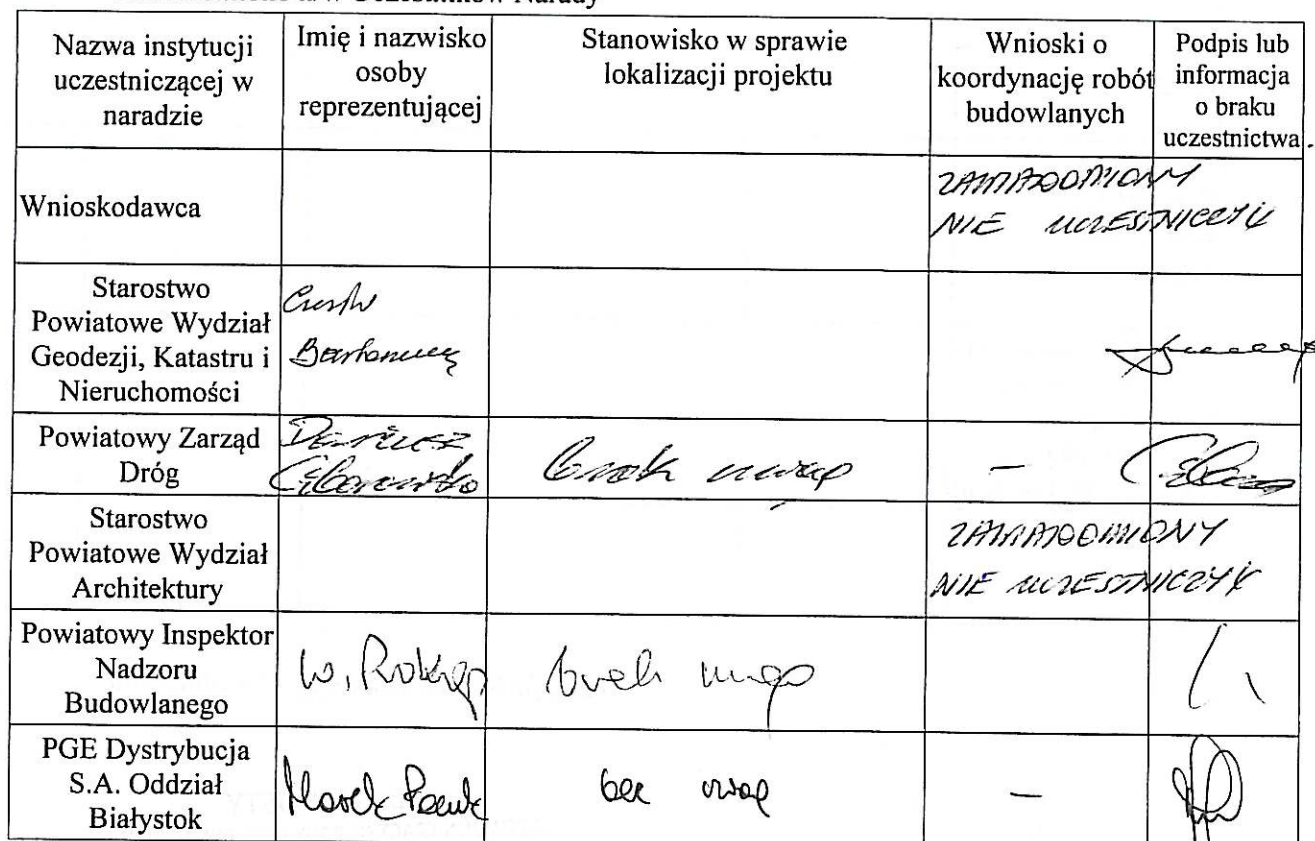 Uczestników Narady
Nazwa instytucji
uczestniczącej w
naradzie
Imię i nazwisko
osoby
reprezentującej
Stanowisko w sprawie
lokalizacji projektu
Wnioski o
koordynację robót
budowlanych
Podpis lub
informacja
o braku
uczestnictwa.
Wnioskodawca
ZAWIADOMIONY
NIE UCZESTNICZYŁ
Starostwo
Powiatowe Wydział
Geodezji, Katastru i
Nieruchomości
Powiatowy Zarząd
Dróg
Dariusz
brak uwag
–
Starostwo
Powiatowe Wydział
Architektury
ZAWIADOMIONY
NIE UCZESTNICZYŁ
Powiatowy Inspektor
Nadzoru
Budowlanego
W.
brak uwag
PGE Dystrybucja
S.A. Oddział
Białystok
Marek
bez uwag
–